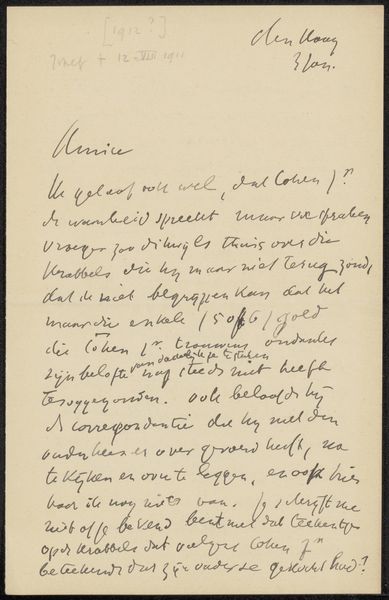 [1912?]
Jozef † 12-VIII 1911
den Haag
3 Jan.
Amice
Ik geloof ook wel, dat Cohen Jr
de waarheid spreekt maar we spraken
vroeger zoo dikwijls thuis over die
krabbels die hij maar niet terug zond,
dat ik niet begrijpen kan dat het
maar die enkele (5 of 6) gold
die Cohen Jr trouwens ondanks
van dadelijk te zoeken
zijn belofte nog steeds niet heeft
teruggevonden. Ook beloofde hij
de correspondentie die hij met den
ouden heer er over gevoerd heeft, na
te kijken en over te leggen, en ook hier
hoor ik nog niets van. Je schrijft me
niet of je bekend bent met dat teekentje
op de krabbels dat volgens Cohen Jr
beteekende dat zijn vader ze gekocht had?